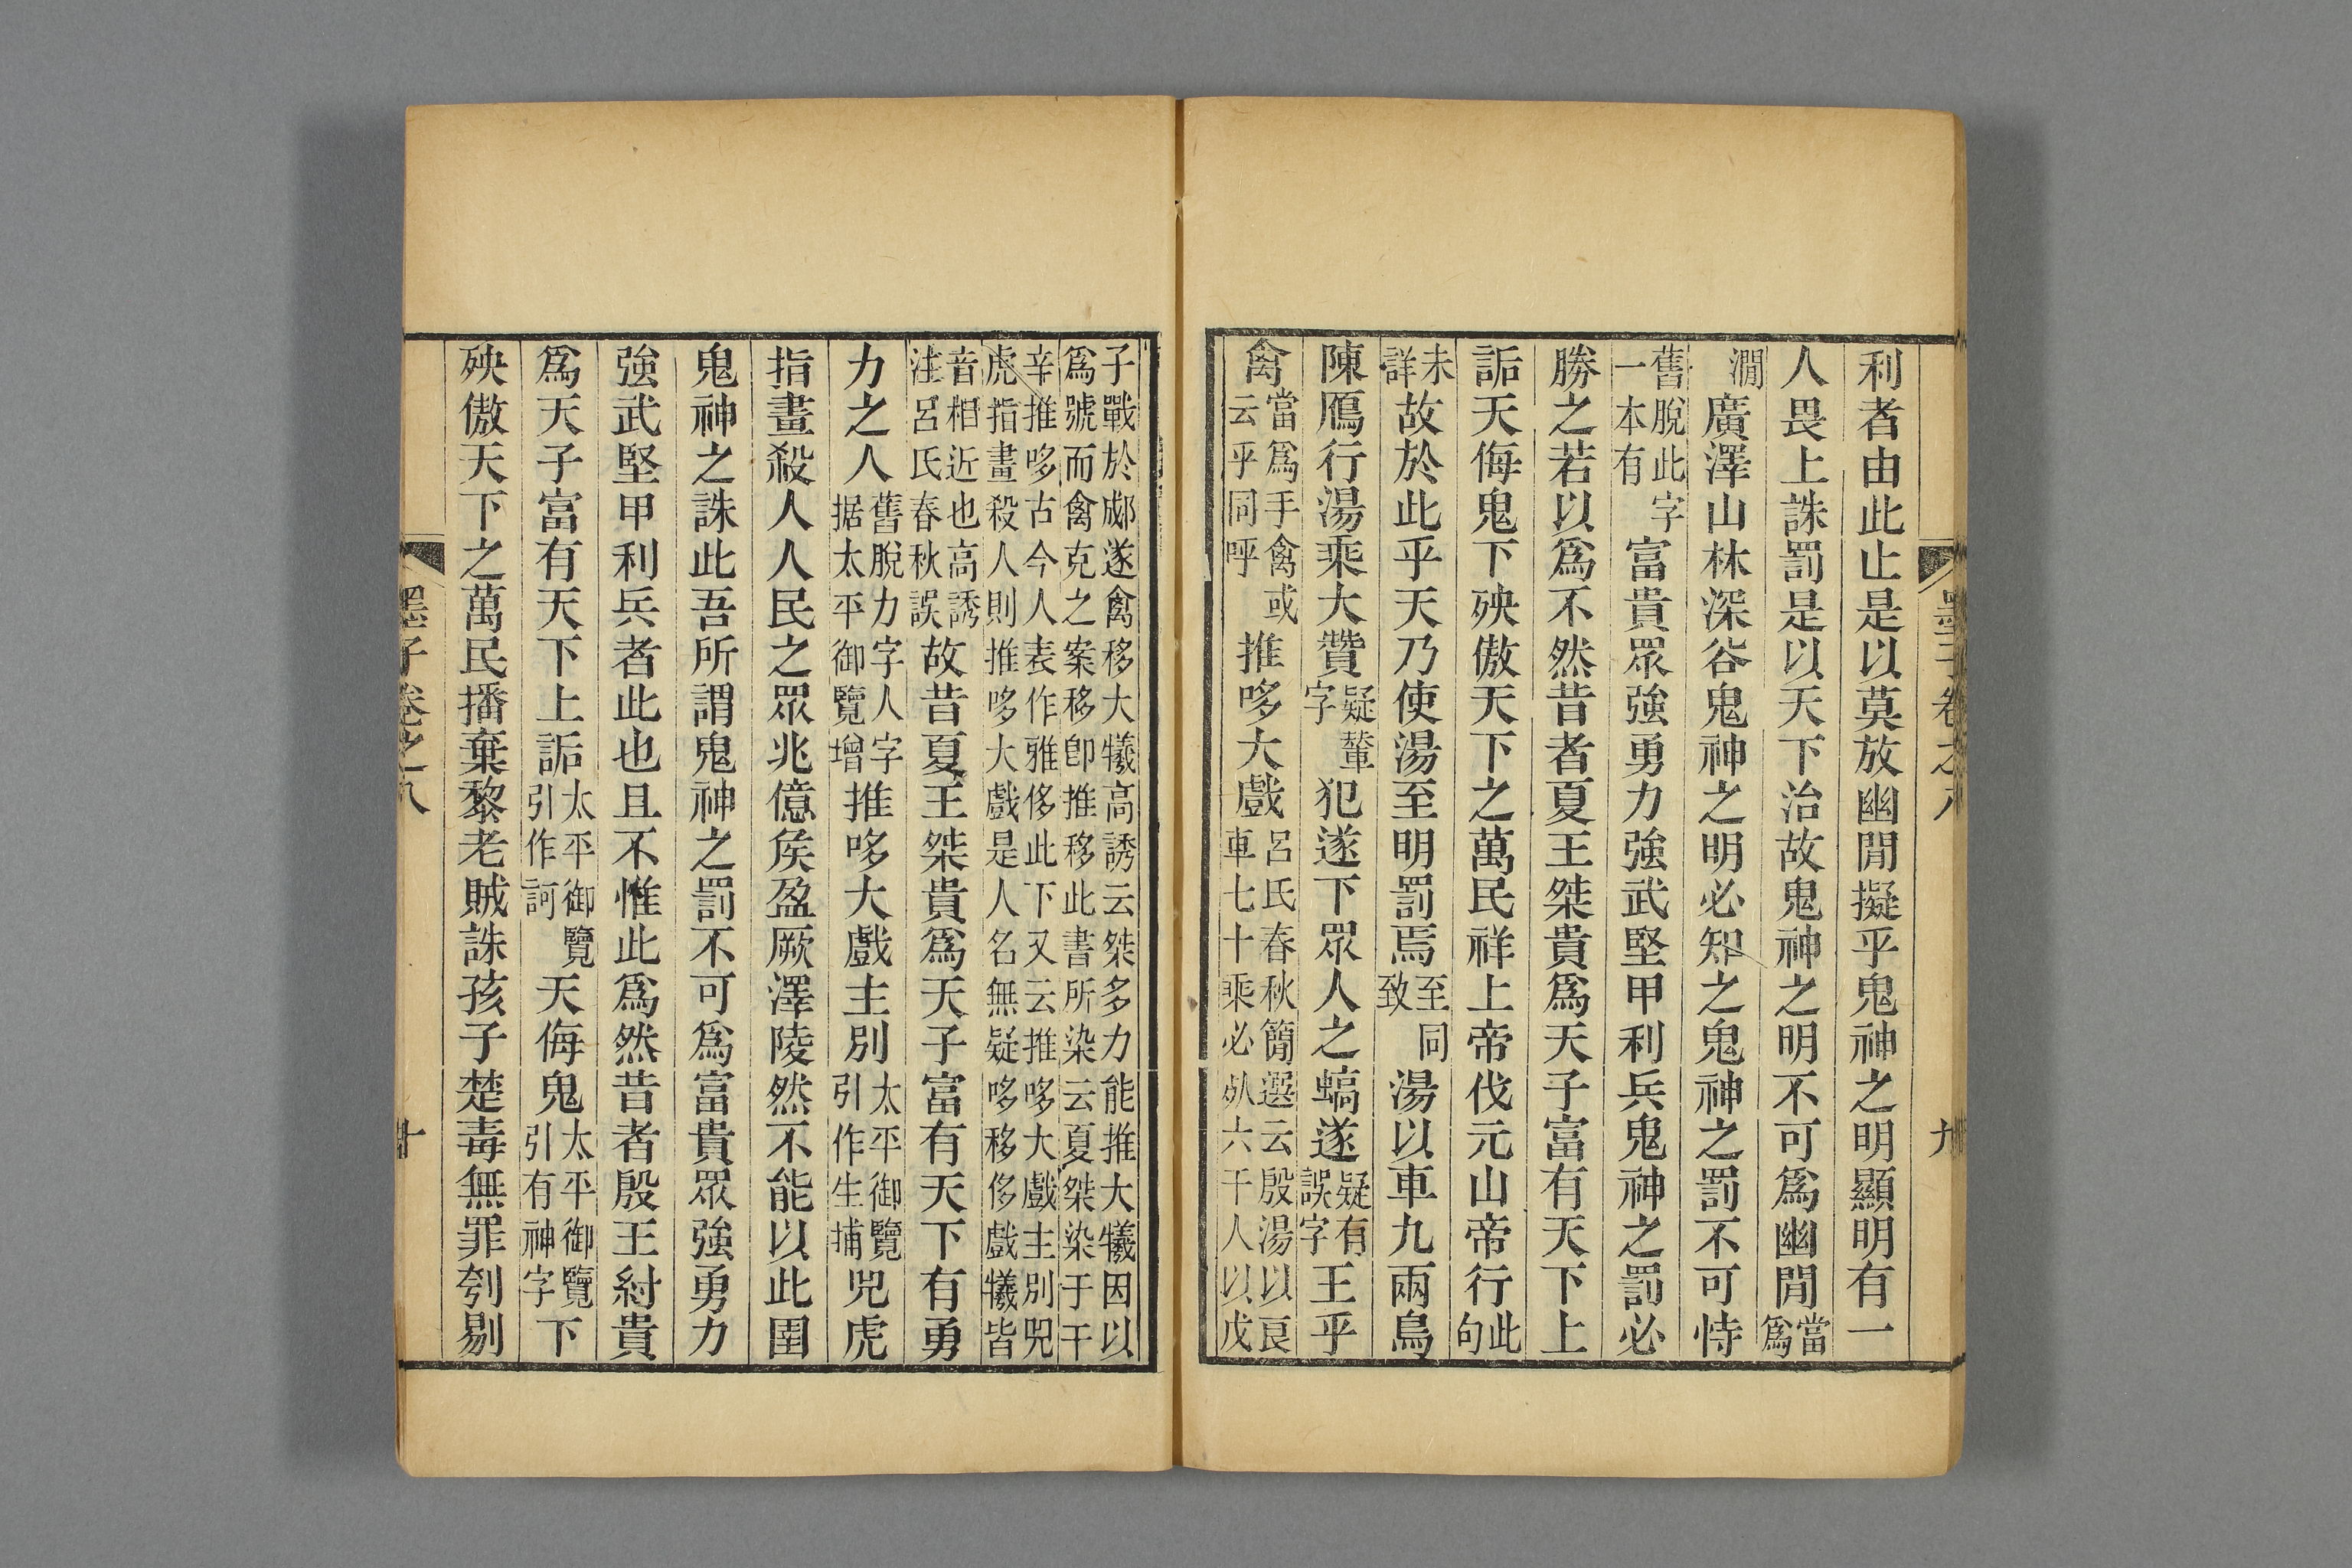 墨子卷之八 九
利者由此止是以莫放幽閒擬乎鬼神之明顯明有一
人畏上誅罰是以天下治故鬼神之明不可爲幽閒當爲
澗廣澤山林深谷鬼神之明必知之鬼神之罰不可恃
舊脫此字一本有富貴眾強勇力強武堅甲利兵鬼神之罰必
勝之若以爲不然昔者夏王桀貴爲天子富有天下上
詬天侮鬼下殃傲天下之萬民祥上帝伐元山帝行此句
未詳故於此乎天乃使湯至明罰焉至同致湯以車九兩鳥
陳鴈行湯乘大贊疑輦字犯遂下眾人之遂疑有誤字王乎
禽當爲手禽或云乎同呼推哆大戲呂氏春秋簡選云殷湯以良車七十乘必死六千人以戊
子戰於郕遂禽移大犧高誘云桀多力能推大犧因以
爲號而禽克之案移卽推移此書所染云夏桀染于干
辛推哆古今人表作雅侈此下又云推哆大戲主別兕
虎指畫殺人則推哆大戲是人名無疑哆移侈戲犧皆
音相近也高誘注呂氏春秋誤故昔夏王桀貴爲天子富有天下有勇
力之人舊脫力字人字据太平御覽增推哆大戲主別太平御覽引作生捕兕虎
指畫殺人人民之眾兆億侯盈厥澤陵然不能以此圉
鬼神之誅此吾所謂鬼神之罰不可爲富貴眾強勇力
強武堅甲利兵者此也且不惟此爲然昔者殷王紂貴
爲天子富有天下上詬太平御覽引作訶天侮鬼太平御覽引有神字下
殃傲天下之萬民播棄黎老賊誅孩子楚毒無罪刳剔
墨子卷之八 十